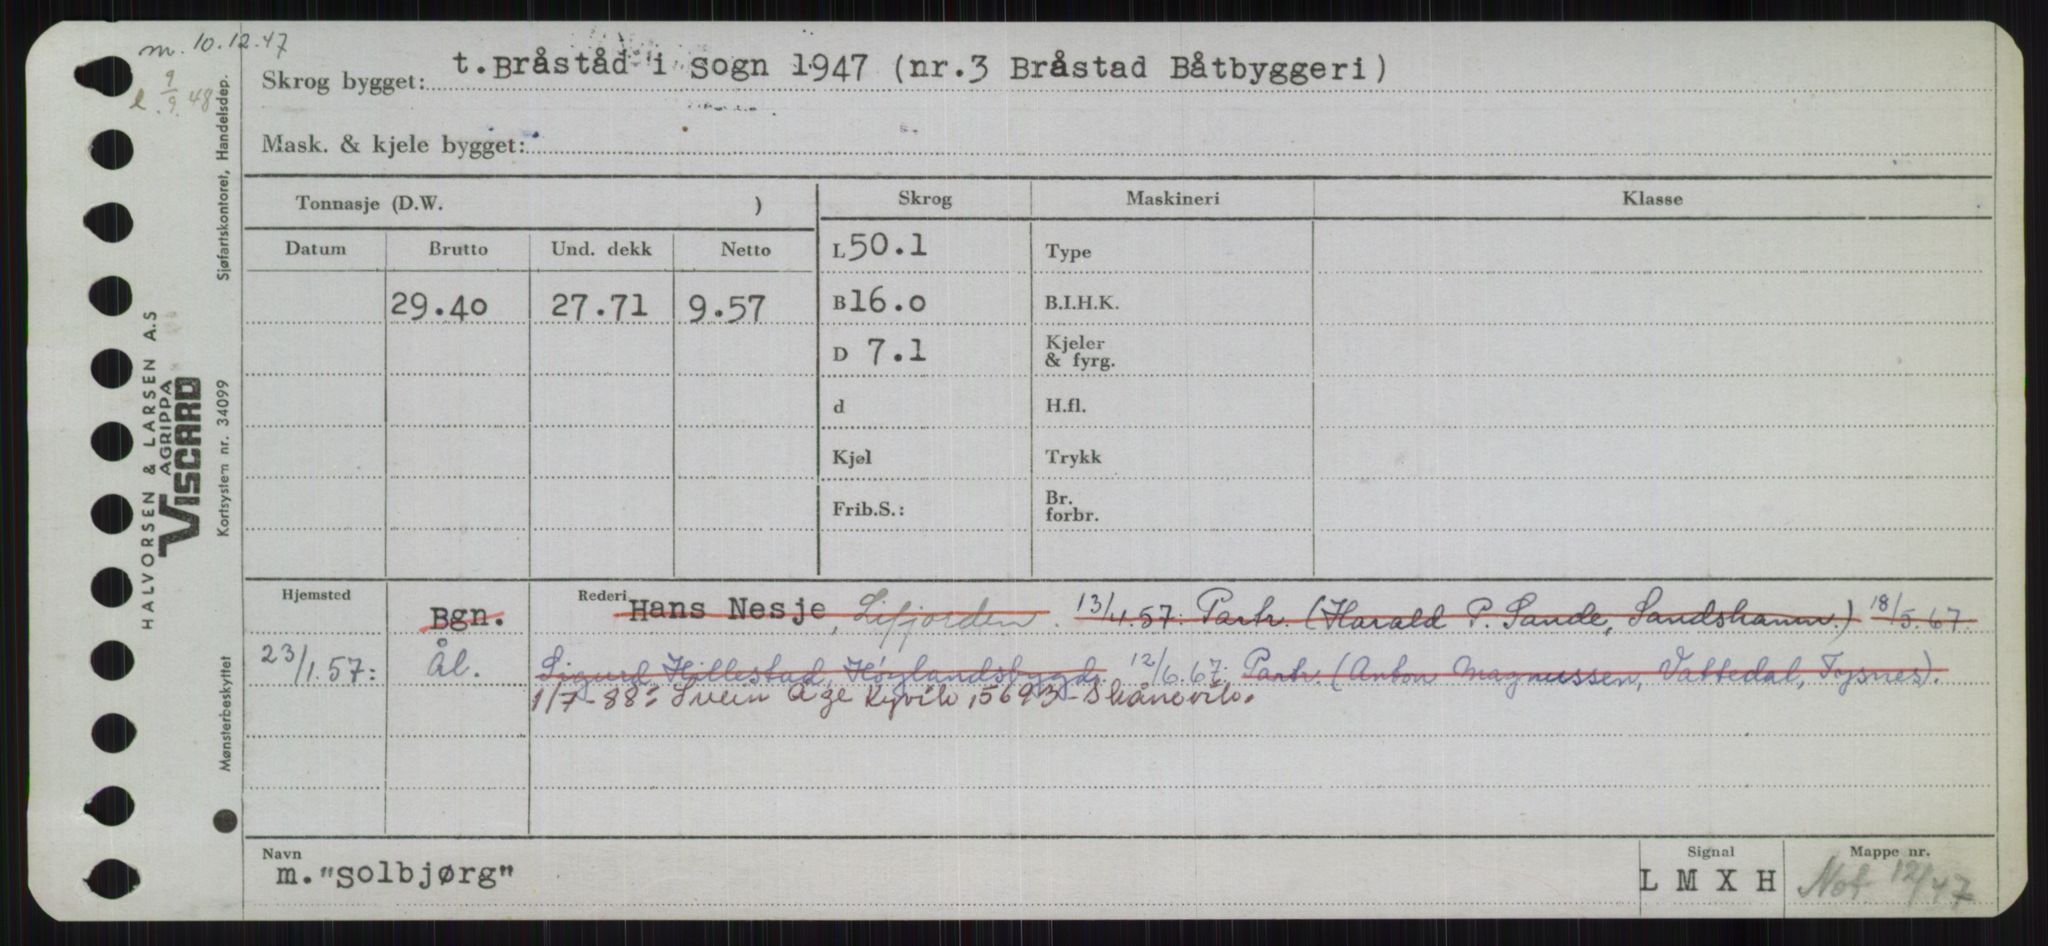 m. 10.12.47
e 9/9.48
Skrog bygget: t.Bråståd i Sogn 1947 (nr.3 Bråstad Båtbyggeri)
Mask. & kjele bygget:
Tonnasje (D.W. )
Skrog Maskineri Klasse
Datum Brutto Und. dekk Netto
L 50.1 Type
29.40 27.71 9.57
B 16.0 B.I.H.K.
D 7.1 Kjeler & fyrg.
d H.fl.
Kjøl Trykk
Frib.S.: Br. forbr.
Hjemsted Bgn. Rederi Hans Nesje, Lifjorden. 13/4.57: Partr. (Harald P. Sande, Sandshamn.) 18/5.67:
23/1.57: Ål. Sigurd Hillestad, Høylandsbygd. 12/6.67: Partr. (Anton Magnussen, Vattedal, Tysnes).
1/7-88: Svein Åge Kyvik, 5693-Skånevik.
Navn m."Solbjørg"
Signal L M X H
Mappe nr. Not 12/47
HALVORSEN & LARSEN A.S
AGRIPPA
VISCARD
Sjøfartskontoret, Handelsdep.
Kortsystem nr. 34099
Mønsterbeskyttet